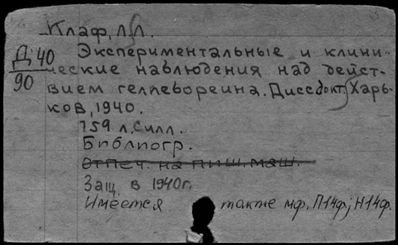 Клаф, Л.Л.
Д 40
90
Экспериментальные и клини-
ческие наблюдения над дейст-
вием геллевореина. Дисс(докт) Харь-
ков, 1940.
159 л. с илл.
Библиогр.
Отпеч. на пиш. маш.
Защ. в 1940г.
Имеется также мф. П14ф; Н14ф.